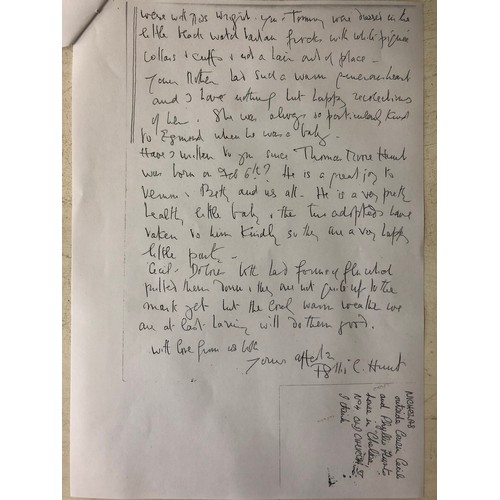 were with Miss Wright. You & Tommy were dressed in the
little black watch tartan frocks with white piqué
collars & cuffs & not a hair out of place -
Your Mother had such a warm generous heart
and I have nothing but happy recollections
of her. She was always so particularly kind
to Egmond when he was a baby -
Have I written to you since Thomas Hunt
was born on Feb 6th? He is a great joy to
and us all. He is a very pretty
healthy little baby & the two adopteds have
taken to him kindly so they are a very happy
little party -
Cecil & both had forms of flu which
pulled them down & they are not quite up to the
mark yet but the warm weather we
are at last having will do them good.
with love from us both
Yours affectly
C. Hunt
NICHOLAS
outside Cousin Cecil
and Phyllis Hunt's
house in Chelsea,
No 4 OLD CHURCH ST
I think